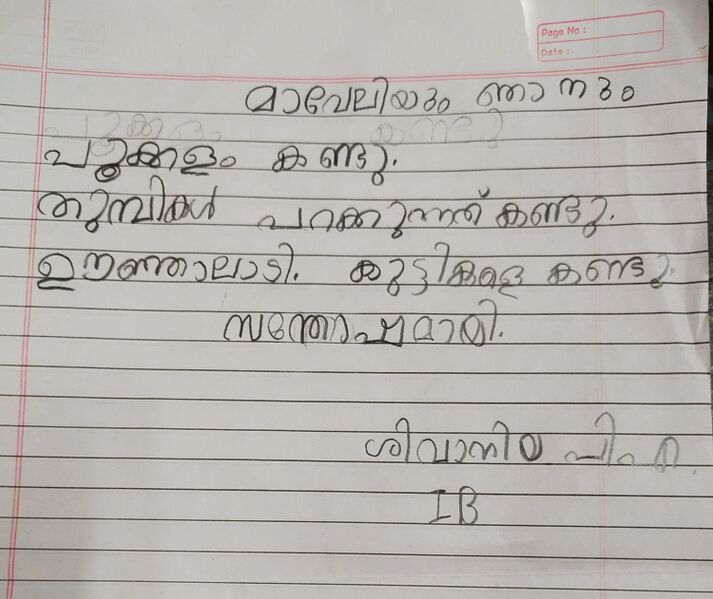 Page No :
Date :
മാവേലിയും ഞാനും
പൂക്കളം കണ്ടു.
തുമ്പികൾ പറക്കുന്നത് കണ്ടു.
ഊഞ്ഞാലാടി. കുട്ടികളെ കണ്ടു.
സന്തോഷമായി.
ശിവാനി
I B